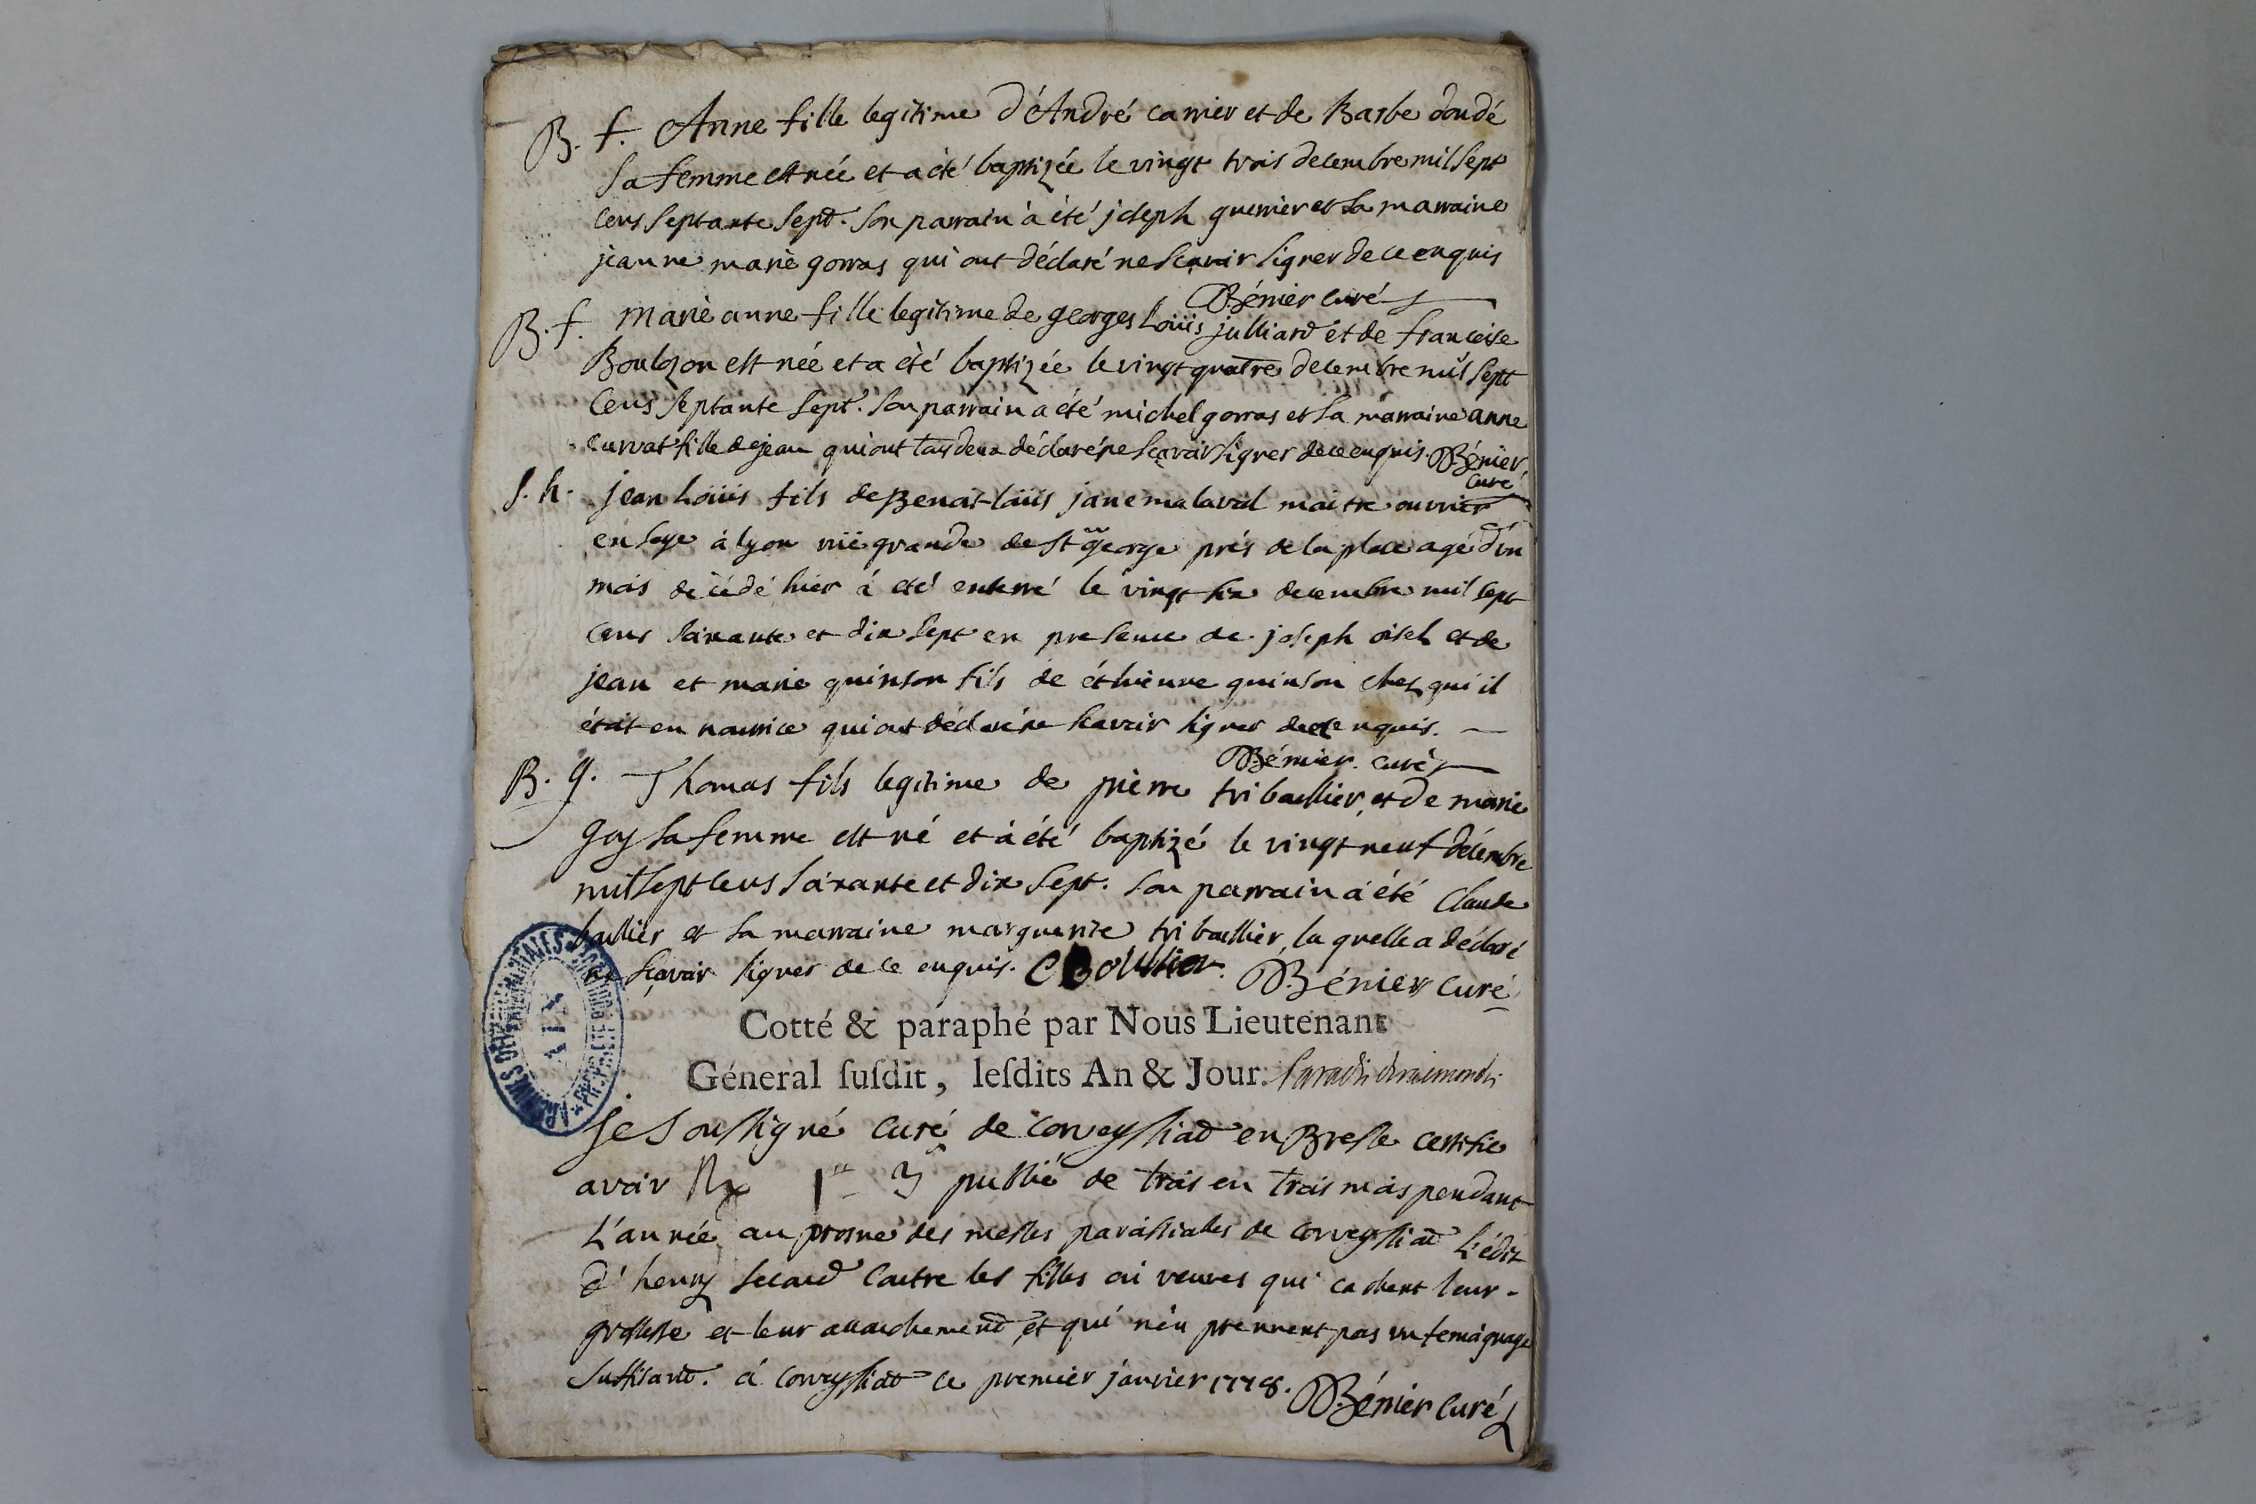 B. f. Anne fille legitime d'André carrier et de Barbe doudé
sa femme est née et a été baptizée le vingt trois decembre mil sept
cens septante sept. son parrain à été joseph guerrier et sa marraine
jeanne marie gorras qui ont déclaré ne sçavoir signer de ce enquis
Bénier curé
B. f. marie anne fille legitime de georges Loüis julliard et de francoise
Boulozon est née et a été baptizée le vingt quatre decembre mil sept
cens septante sept. son parrain a été michel gorras et sa marraine anne
curvat fille de jean qui ont tous deux déclaré ne sçavoir signer de ce enquis. Bénier
curé
S. h. jean Loüis fils de Benoit-loüis janemalaval maitre ouvrier
en soye à lyon rüe grande de st george prés de la place agé d'un
mois décédé hier à eté enterré le vingt six decembre mil sept
cens soixante et dix sept en presence de joseph oisel et de
jean et marie quinson fils de éthienne quinson chez qui il
était en nourrice qui ont déclaré ne scavoir signer de ce enquis.
Bénier curé
B. g. Thomas fils legitime de pierre triboullier, et de marie
Goy sa femme est né et à été baptizé le vingt neuf décembre
mil sept cens soixante et dix sept. son parrain à été Claude
boullier et sa marraine marguerite triboullier, la quelle a déclaré
ne sçavoir signer de ce enquis. C Boullier. Bénier curé
Cotté & paraphé par Nous Lieutenant
Géneral susdit, lesdits An & Jour.
ARCHIVES DÉPARTEMENTALES AIN
Je soussigné curé de Corveyssiat en Bresse certifie
avoir publié de trois en trois mois pendant
L'année au prosne des messes paroissialles de Corveyssiat l'édit
d'henry second contre les filles ou veuves qui cachent leur
grossesse et leur accouchement, et qui n'en prennent pas un temoignage
suffisant. à Corveyssiat ce premier janvier 1778. Bénier curé